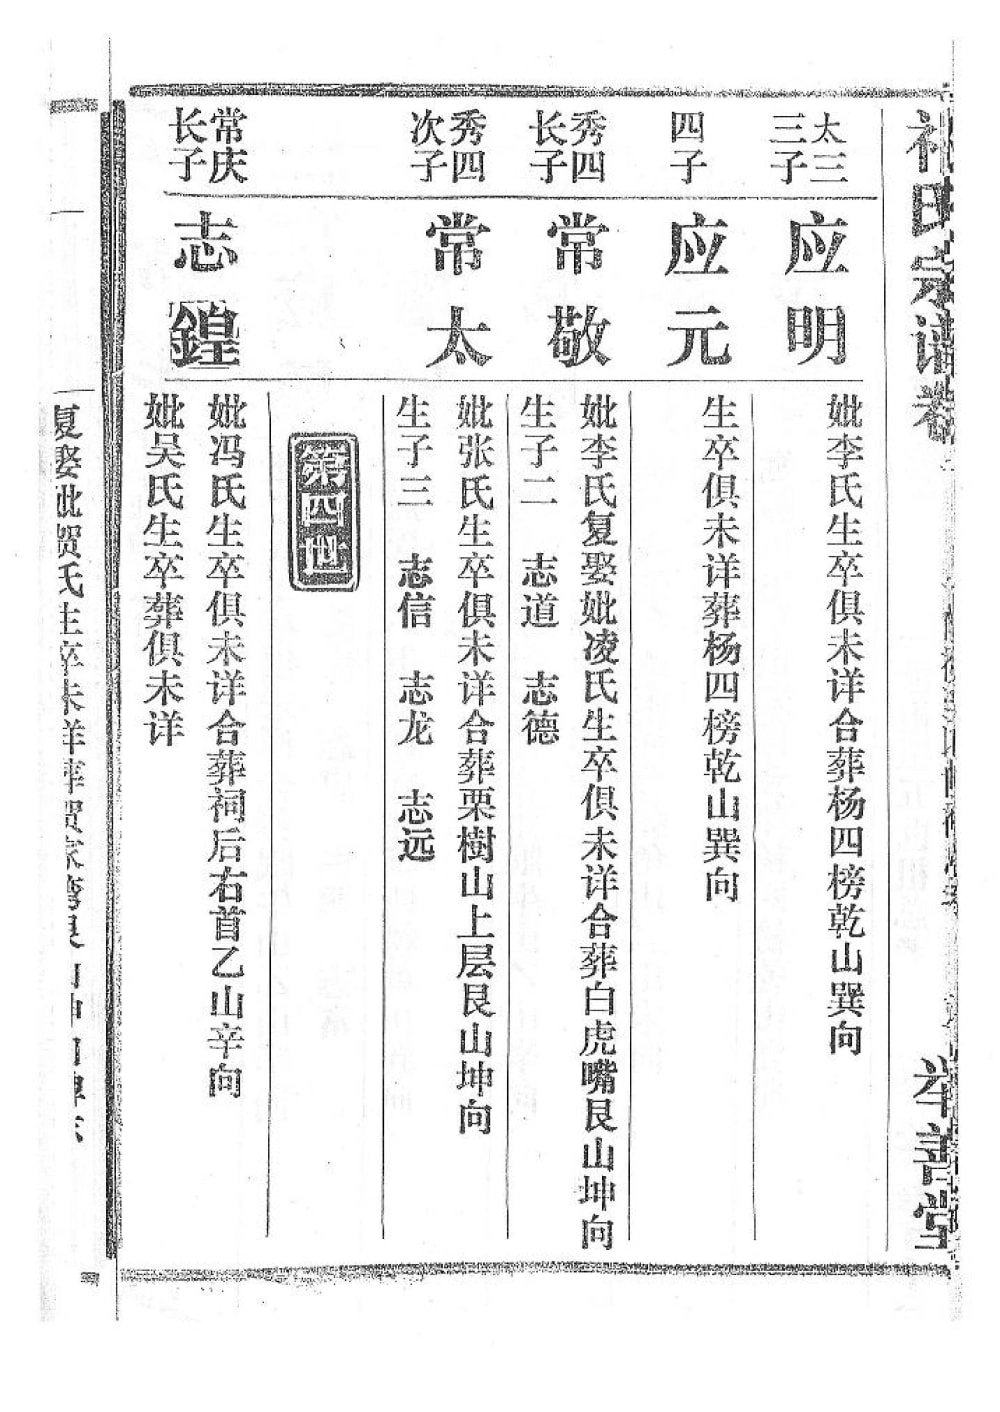 氏宗谱卷
举善堂
太三
三子
应明
妣李氏生卒俱未详合葬杨四榜乾山巽向
四子
应元
生卒俱未详葬杨四榜乾山巽向
秀四
长子
常敬
妣李氏复娶妣凌氏生卒俱未详合葬白虎嘴艮山坤向
生子二 志道 志德
秀四
次子
常太
妣张氏生卒俱未详合葬栗樹山上层艮山坤向
生子三 志信 志龙 志远
第四世
常庆
长子
志鍠
妣冯氏生卒俱未详合葬祠后右首乙山辛向
妣吴氏生卒葬俱未详
复娶妣贺氏生卒未详葬贺家湾艮山坤向